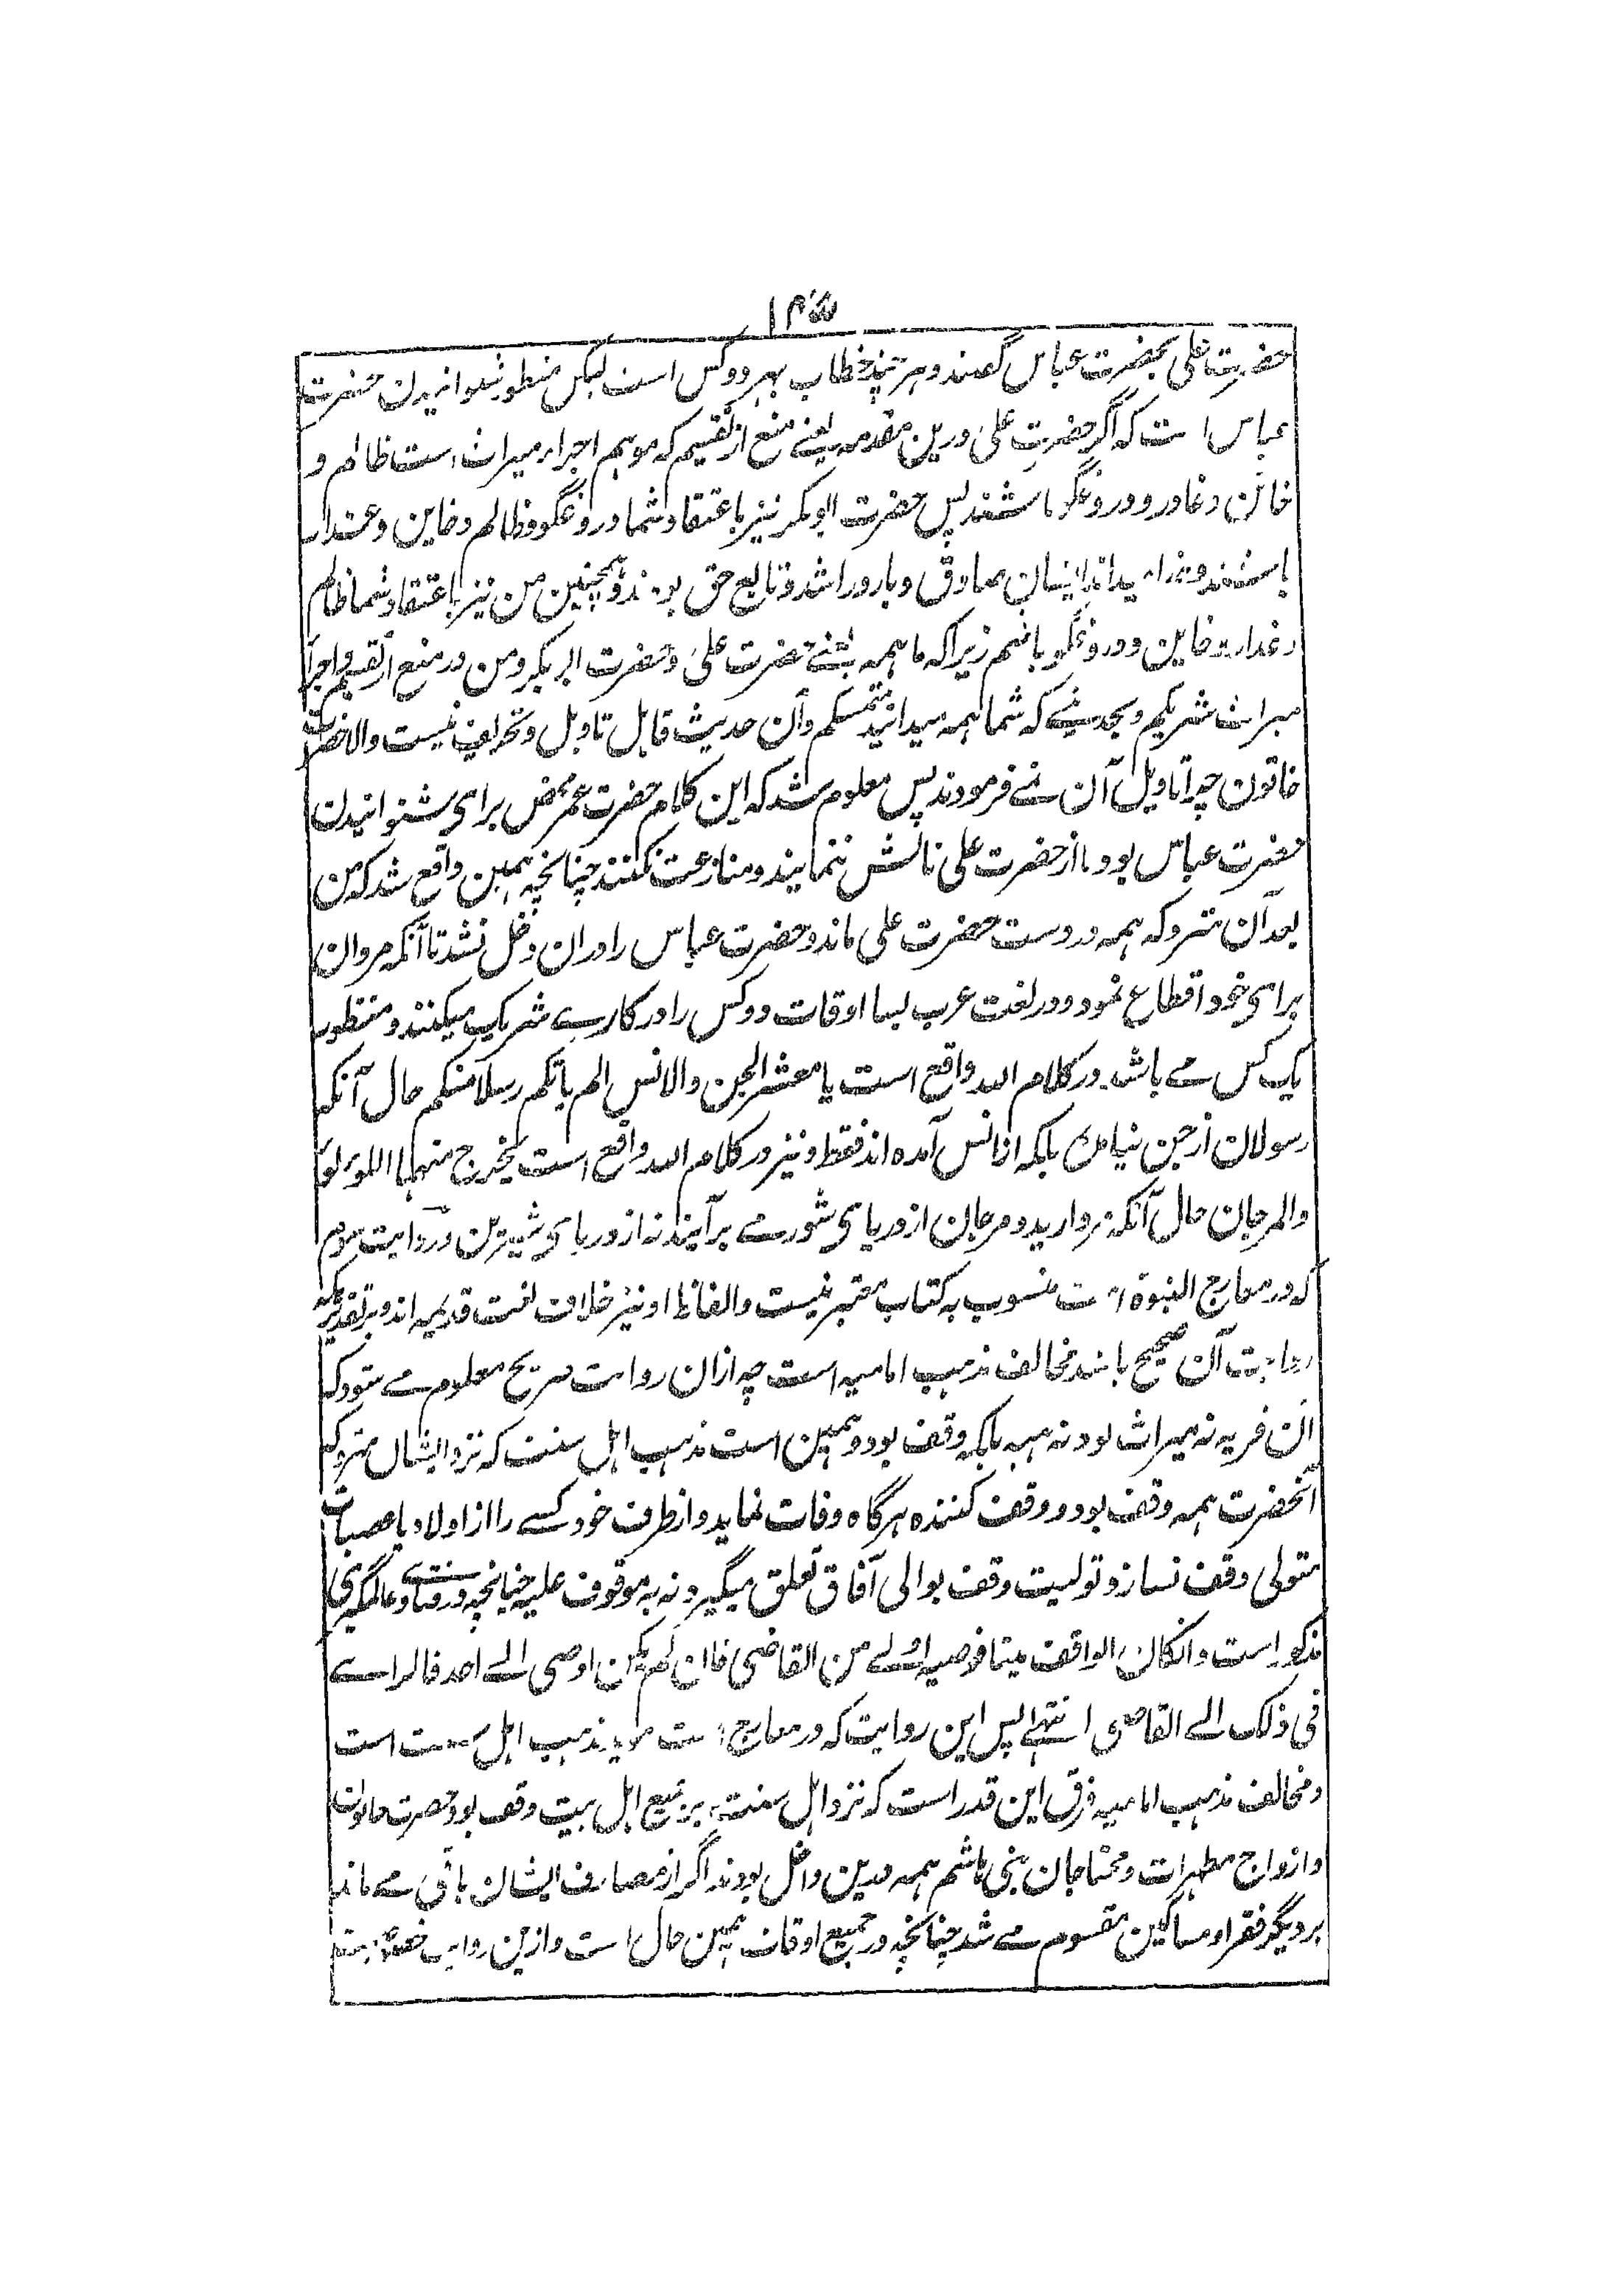 حضرت علی بحضرت عباس گفتند و هر چند خطاب بهر دو کس است لیکن منظور شنوانیدن حضرت
عباس است که اگر حضرت علی درین مقدمه یعنے منع از تقسیم که موهم اجراء میراث است ظالم و
خائن و غادر و دروغگو باشند پس حضرت ابو بکر نیز باعتقاد شما دروغگو و ظالم و خاین و غدار
باشند و خدا میداند اینان صادق و بار و راشد و تابع حق بودند و همچنین من نیز باعتقاد شما ظالم
و غدار و خاین و دروغگو باشم زیرا که ما همه یعنے حضرت علی و حضرت ابو بکر و من در منع از تقسیم و اجرا
میراث شریکیم و بحدیثے که شما همه میدانید متمسکم و آن حدیث قابل تاویل و تحریف نیست و الا حضرت
خاتون چرا تاویل آن نمے فرمودند پس معلوم شد که این کلام حضرت عمر محض برای شنوانیدن
حضرت عباس بود تا از حضرت علی نالش ننمایند و منازعت نکنند چنانچه همین واقع شد که من
بعد آن متروکه همه در دست حضرت علی ماند و حضرت عباس را در ان دخل نشد تا آنکه مروان
برای خود اقطاع نمود و در لغت عرب بسا اوقات دو کس را در کارے شریک میکنند و منظور
یک کس مے باشد در کلام الله واقع است یا معشر الجن والانس الم یاتکم رسلا منکم حال آنکه
رسولان از جن نیامده بلکه از انس آمده اند فقط و نیز در کلام الله واقع است یخرج منهما اللولو
والمرجان حال آنکه مروارید و مرجان از دریای شور مے برآیند نه از دریای شیرین و روایت سوم
که در معارج النبوة است منسوب به کتاب معتبر نیست و الفاظ او نیز خلاف لغت قدیمه اند و بر تقدیریکه
روایت آن صحیح باشد مخالف مذهب امامیه است چه ازان روایت صریح معلوم مے شود که
آن قریه نه میراث بود نه هبه بلکه وقف بود و همین است مذهب اهل سنت که نزد ایشان متروکه
آنحضرت همه وقف بود و وقف کننده هرگاه وفات نماید و از طرف خود کسے را از اولاد یا عصبات
متولی وقف نسازد تولیت وقف بوالی آفاق تعلق میگیرد نه به موقوف علیه چنانچه در فتاوے عالمگیری
مذکور است و انکان الواقف میتا فوصیه اولے من القاضی فان لم یکن اوصی الے احد فالراے
فی ذلک الے القاضی انتهے پس این روایت که در معارج است موید مذهب اهل سنت است
و مخالف مذهب امامیه فرق این قدر است که نزد اهل سنت بر جمیع اهل بیت وقف بود حضرت خاتون
و ازواج مطهرات و محتاجان بنی هاشم همه درین داخل بودند اگر از مصارف ایشان باقی مے ماند
بر دیگر فقرا و مساکین مقسوم مے شد چنانچه در جمیع اوقات همین حال است و ازین روایت